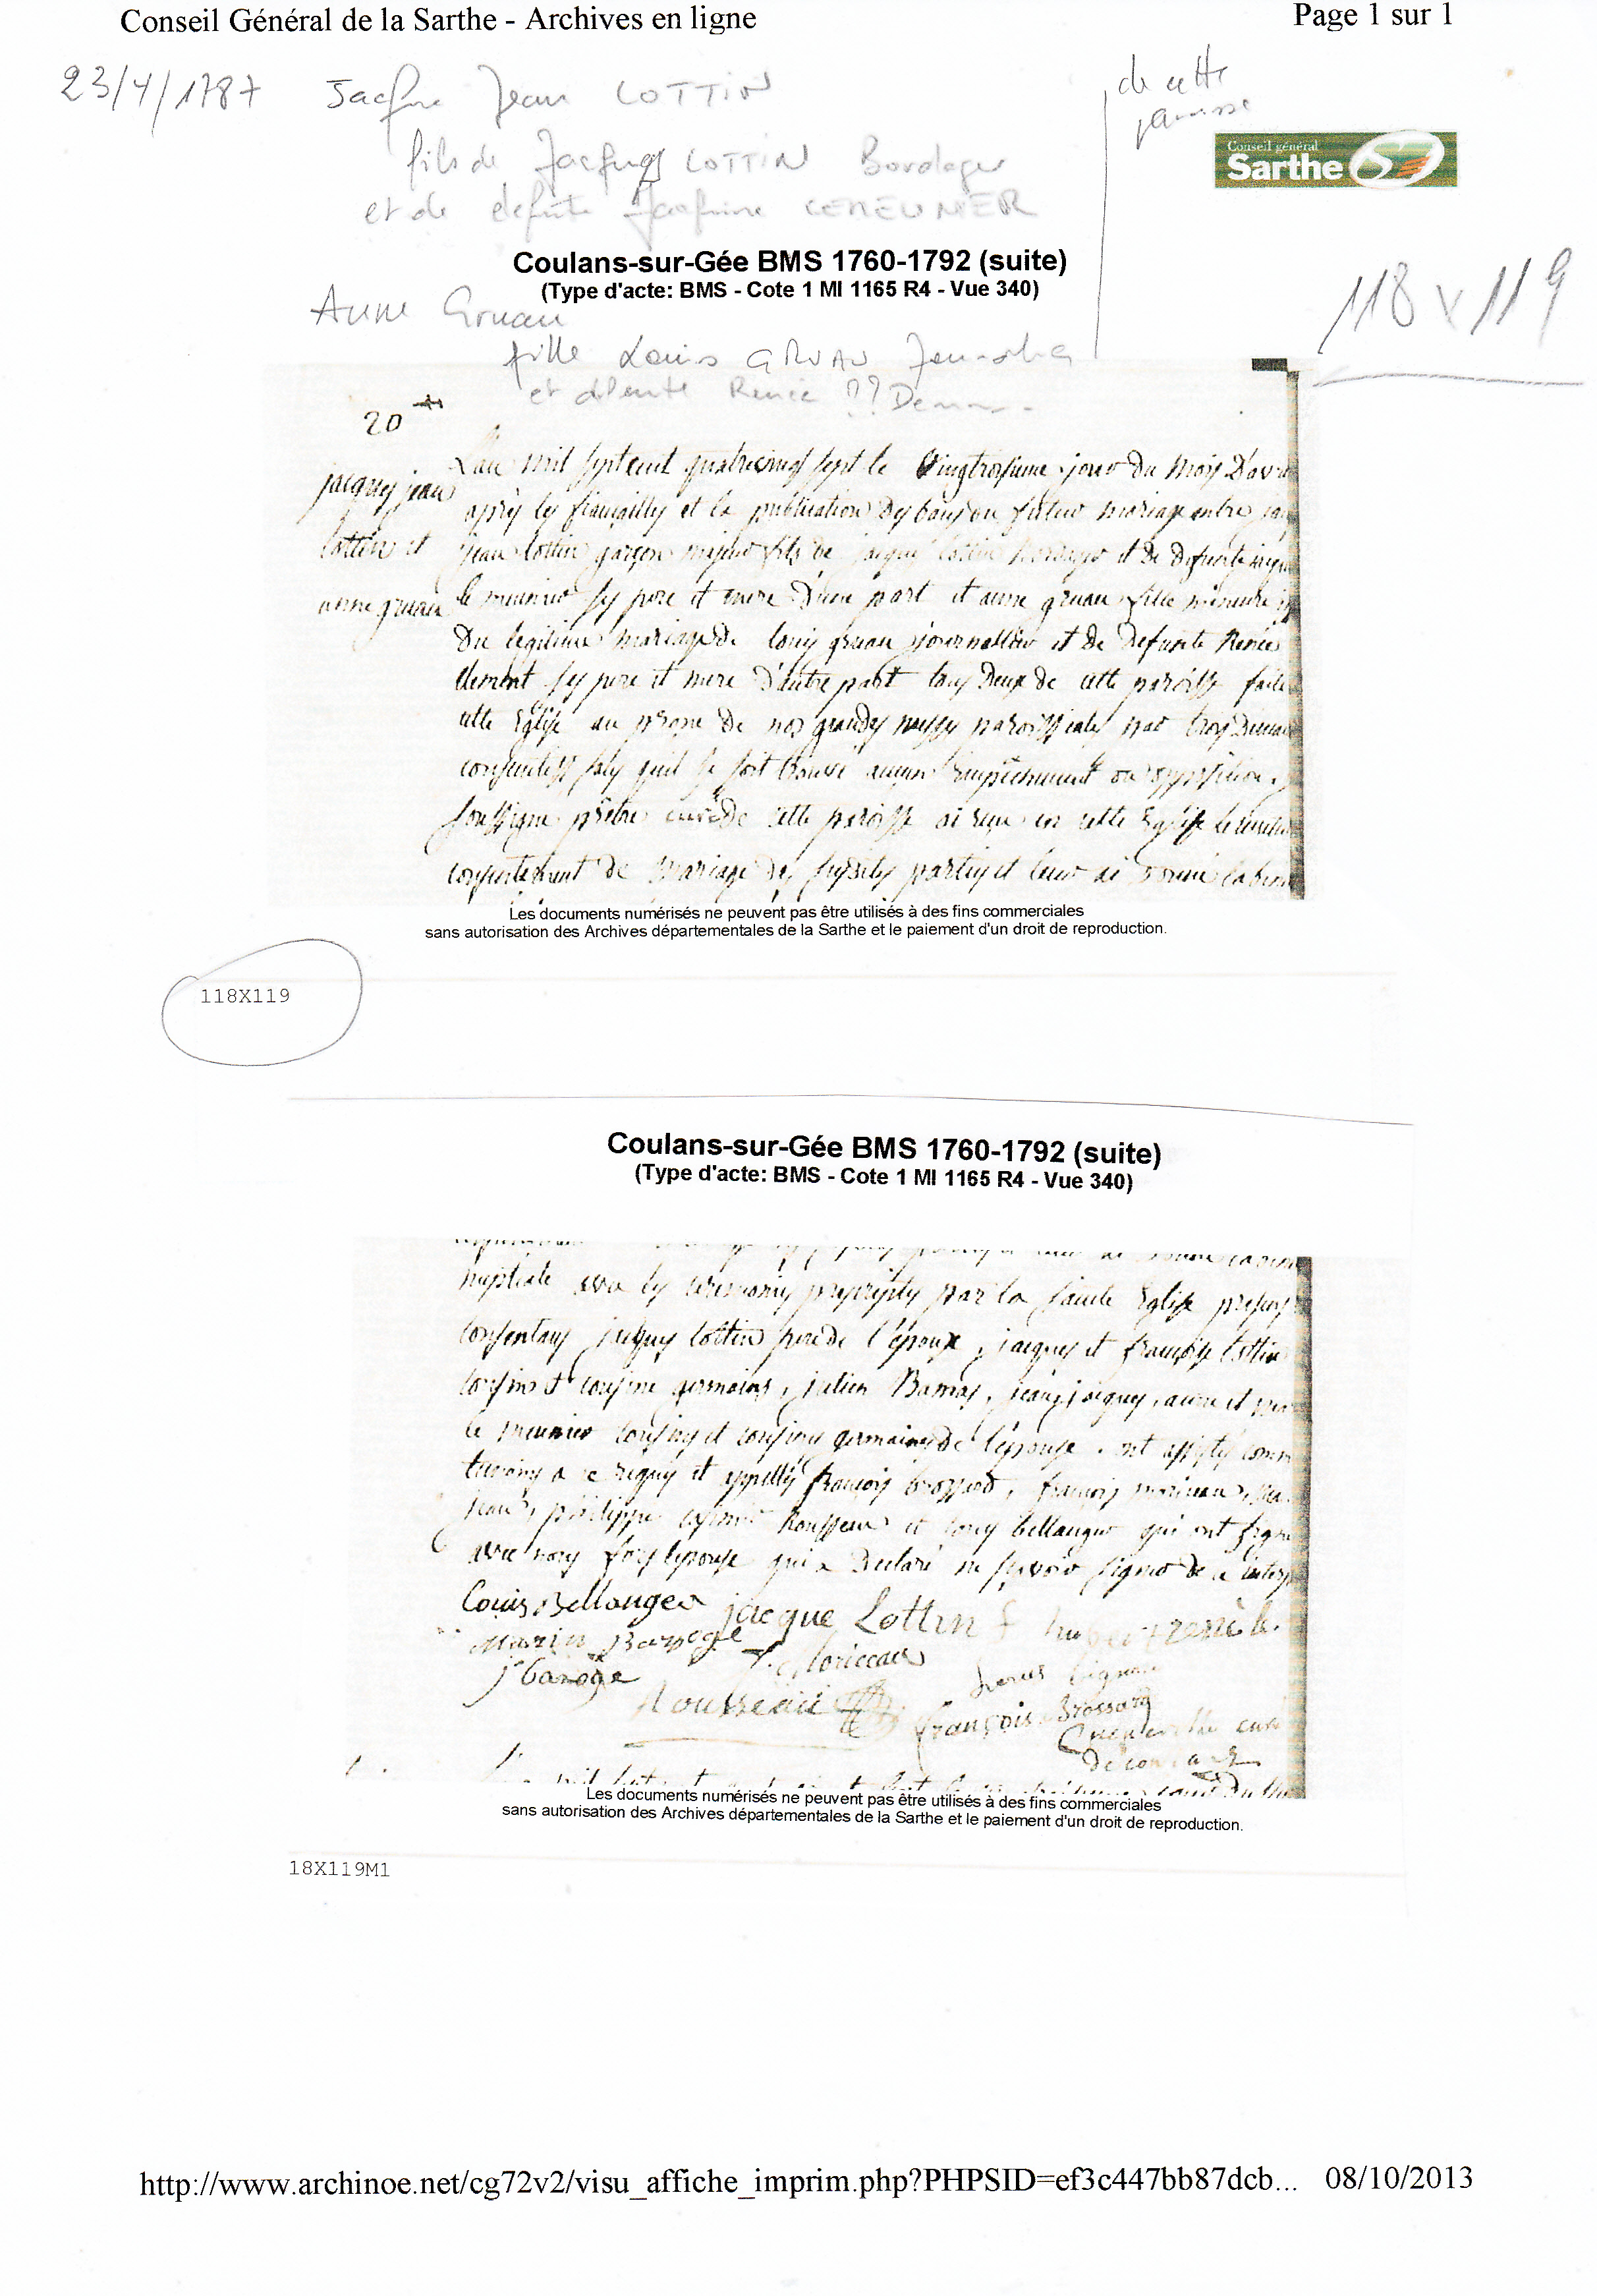 Conseil Général de la Sarthe - Archives en ligne
Page 1 sur 1
23/4/1787 Jacque Jean LOTTIN
de cette
paroisse
fils de Jacques LOTTIN Bordager
et de defunte Jacquine LEMEUNIER
Conseil général
Sarthe
Coulans-sur-Gée BMS 1760-1792 (suite)
(Type d'acte: BMS - Cote 1 MI 1165 R4 - Vue 340)
118 x 119
Anne Gruau
fille Louis GRUAU Journalier
et défunte Renée ??
20
jacques jean
lottin et
anne gruau
L'an mil sept cent quatrevingt sept le vingtroisieme jour du mois D'avr
après les fiançailles et la publication des bans du futur mariage entre jac
jean lottin garçon majeur fils de jacque lottin bordager et de Defunte jaqu
le meunier ses pere et mere D'une part et anne gruau fille mineure
Du legitime mariage de louis gruau journallier et de Defunte Renée
Clement ses pere et mere D'autre part tous Deux de cette paroisse faite
cette Eglise au prone de nos grandes messes paroissiales par trois Diman
consecutifs sans quil se soit trouvé aucun Empêchement ou opposition
soussigné prêtre curé de cette paroisse ai reçu en cette Eglise le mutu
consentement de mariage des susdites parties et leur ai donné la bene
Les documents numérisés ne peuvent pas être utilisés à des fins commerciales
sans autorisation des Archives départementales de la Sarthe et le paiement d'un droit de reproduction.
118X119
Coulans-sur-Gée BMS 1760-1792 (suite)
(Type d'acte: BMS - Cote 1 MI 1165 R4 - Vue 340)
nuptiale avec les ceremonies prescrites par la sainte Eglise presens
consentans jacques lottin pere de l'époux, jacques et françoise lottin
cousin et cousine germains, julien jean, jacques, anne et
le meunier cousins et cousines germaines de l'épouse. ont assisté comm
temoins a ce requis et appellés françois brossard, françois
jean, philippe Rousseau et louis bellanger qui ont signé
avec nous fors lepouse qui a Declaré ne sçavoir signer de ce interp
Louis Bellanger jacque Lottin
Marin Baroge
J Baroge
Rousseau
françois Brossard
curé
de coulans
Les documents numérisés ne peuvent pas être utilisés à des fins commerciales
sans autorisation des Archives départementales de la Sarthe et le paiement d'un droit de reproduction.
18X119M1
http://www.archinoe.net/cg72v2/visu_affiche_imprim.php?PHPSID=ef3c447bb87dcb... 08/10/2013